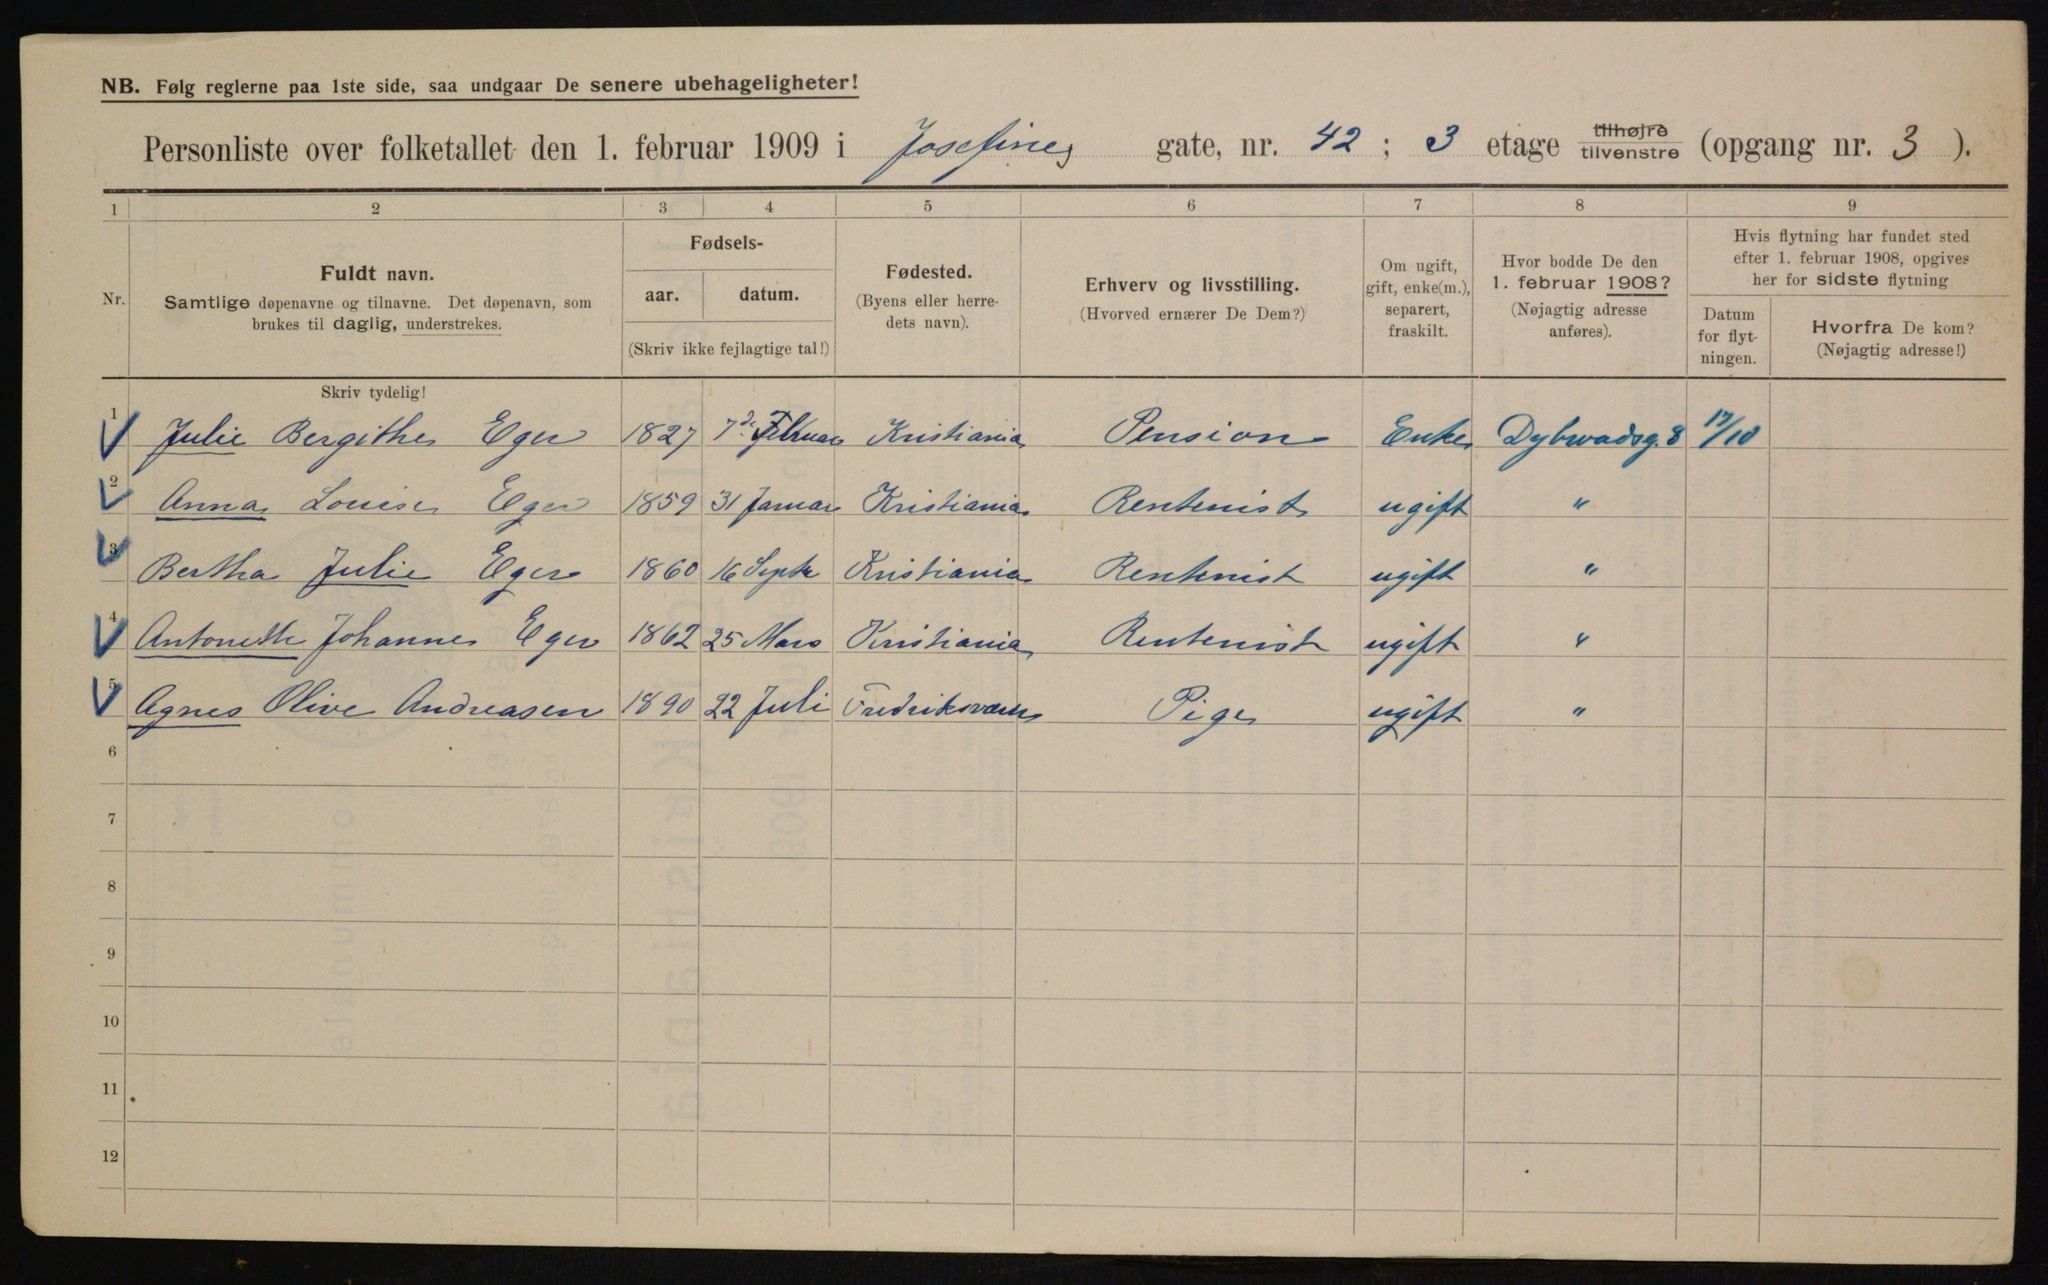 NB. Følg reglerne paa 1ste side, saa undgaar De senere ubehageligheter!
Personliste over folketallet den 1. februar 1909 i Josefines gate, nr. 42 ; 3 etage tilhøjre tilvenstre (opgang nr. 3 ).
1 2 3 4 5 6 7 8 9
Nr.
Fuldt navn.
Samtlige døpenavne og tilnavne. Det døpenavn, som
brukes til daglig, understrekes.
Fødsels-
aar. datum.
(Skriv ikke fejlagtige tal!)
Fødested.
(Byens eller herre-
dets navn).
Erhverv og livsstilling.
(Hvorved ernærer De Dem?)
Om ugift,
gift, enke(m.),
separert,
fraskilt.
Hvor bodde De den
1. februar 1908?
(Nøjagtig adresse
anføres).
Hvis flytning har fundet sted
efter 1. februar 1908, opgives
her for sidste flytning
Datum
for flyt-
ningen.
Hvorfra De kom?
(Nøjagtig adresse!)
Skriv tydelig!
1 Julie Bergithe Eger 1827 7de Februar Kristiania Pension Enke Dybwadsg. 8 17/10
2 Anna Louise Eger 1859 31 Januar Kristiania Rentenist ugift "
3 Bertha Julie Eger 1860 16 Septr Kristiania Rentenist ugift "
4 Antonette Johanne Eger 1862 25 Mars Kristiania Rentenist ugift "
5 Agnes Olive Andreasen 1890 22 Juli Fredriksværn Pige ugift "
6
7
8
9
10
11
12